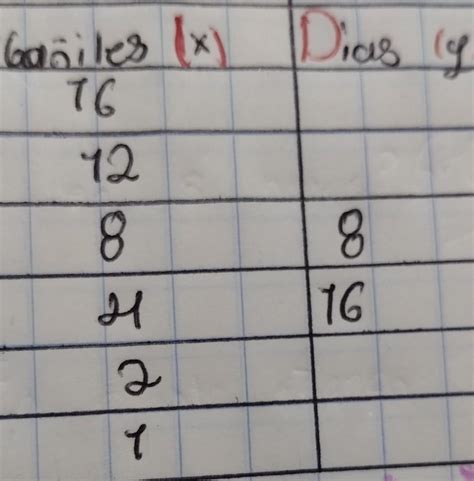 bañiles (x) Dias (y
16
12
8 8
4 16
2
1